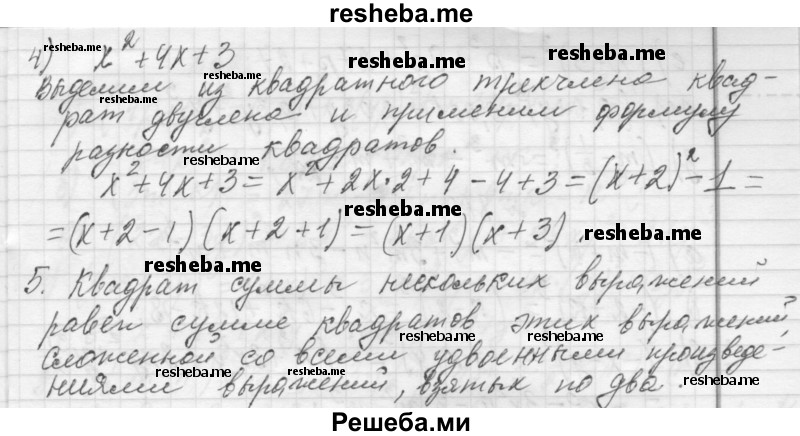 resheba.me
4) x² + 4x + 3 resheba.me resheba.me
Выделим из квадратного трехчлена квад-
рат двучлена и применим формулу
разности квадратов. resheba.me resheba.me
x² + 4x + 3 = x² + 2x · 2 + 4 - 4 + 3 = (x + 2)² - 1 =
resheba.me
= (x + 2 - 1) (x + 2 + 1) = (x + 1) (x + 3). resheba.me
resheba.me
5. Квадрат суммы нескольких выражений
равен сумме квадратов этих выражений,
resheba.me resheba.me
сложенной со всеми удвоенными произведе-
ниями выражений, взятых по два. resheba.me
resheba.me
Решеба.ми